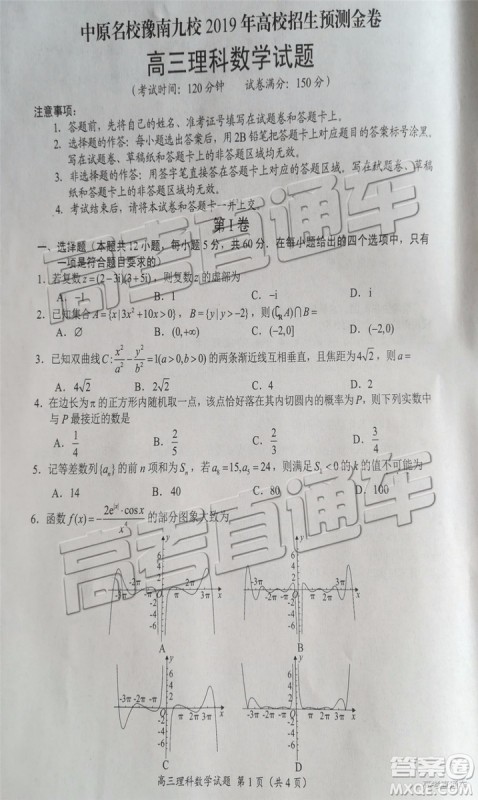 中原名校豫南九校 2019 年高校招生预测金卷
高三理科数学试题
(考试时间：120 分钟 试卷满分：150 分)
注意事项：
1. 答题前，先将自己的姓名、准考证号填写在试题卷和答题卡上。
2. 选择题的作答：每小题选出答案后，用 2B 铅笔把答题卡上对应题目的答案标号涂黑，
写在试题卷、草稿纸和答题卡上的非答题区域均无效。
3. 非选择题的作答：用签字笔直接答在答题卡上对应的答题区域内。写在试题卷、草稿
纸和答题卡上的非答题区域均无效。
4. 考试结束后，请将本试卷和答题卡一并上交。
第 I 卷
一、选择题（本题共 12 小题，每小题 5 分，共 60 分，在每小题给出的四个选项中，只有
一项是符合题目要求的）
1. 若复数 z=(2−3i)(3+5i)，则复数 z 的虚部为
A. −1 B. 1 C. −i D. i
2. 已知集合 A={x|3x²+10x>0}，B={y|y>−2}，则(∁RA)∩B=
A. ∅ B. (0,+∞) C. (−2,0] D. (−2,0)
3. 已知双曲线 C: x²/a² − y²/b² =1(a>0,b>0) 的两条渐近线互相垂直，且焦距为 4√2，则 a=
A. 4√2 B. 2√2 C. 4 D. 2
4. 在边长为 π 的正方形内随机取一点，该点恰好落在该正方体内切圆内的概率为 P，则下列实数中
与 P 最接近的数是
A. 1/4 B. 2/5 C. 2/3 D. 3/4
5. 记等差数列{aₙ}的前 n 项和为 Sₙ，
A. 14 B. 40 C. 80 D. 100
6. 函数 f(x)= 的部分图象大致为
A B
C D
高三理科数学试题 第 1 页（共 4 页）
高考直通车
高考直通车
答案圈
MXQE.COM